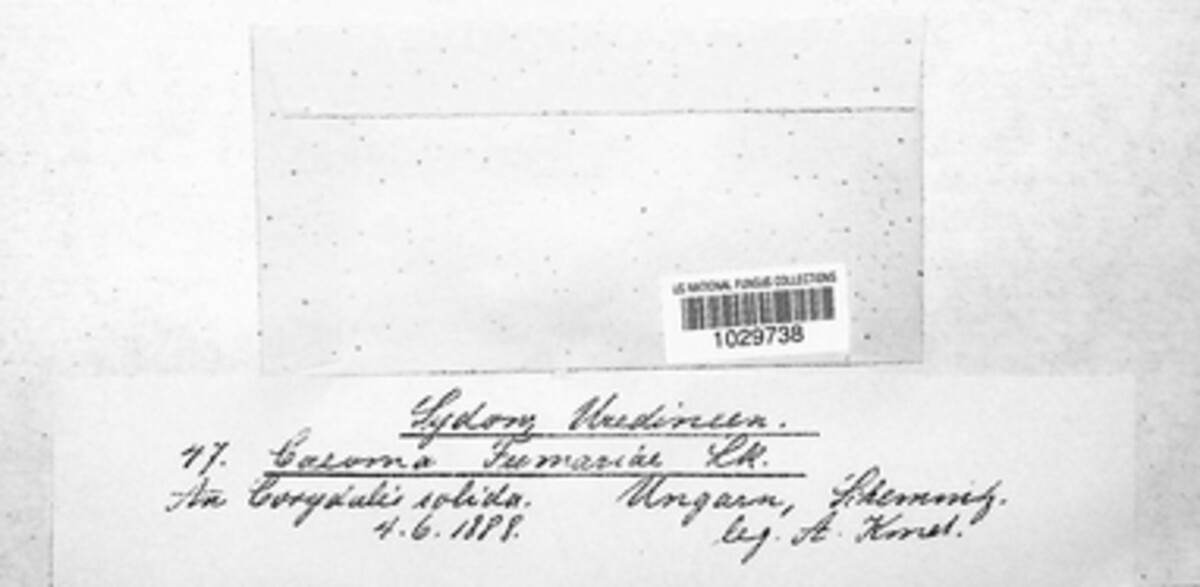 US NATIONAL FUNGUS COLLECTIONS
1029738
Sydow, Uredineen.
47. Caeoma Fumariae Lk.
An Corydalis solida. Ungarn, Schemnitz.
4.6.1888. leg. A. Kmet.